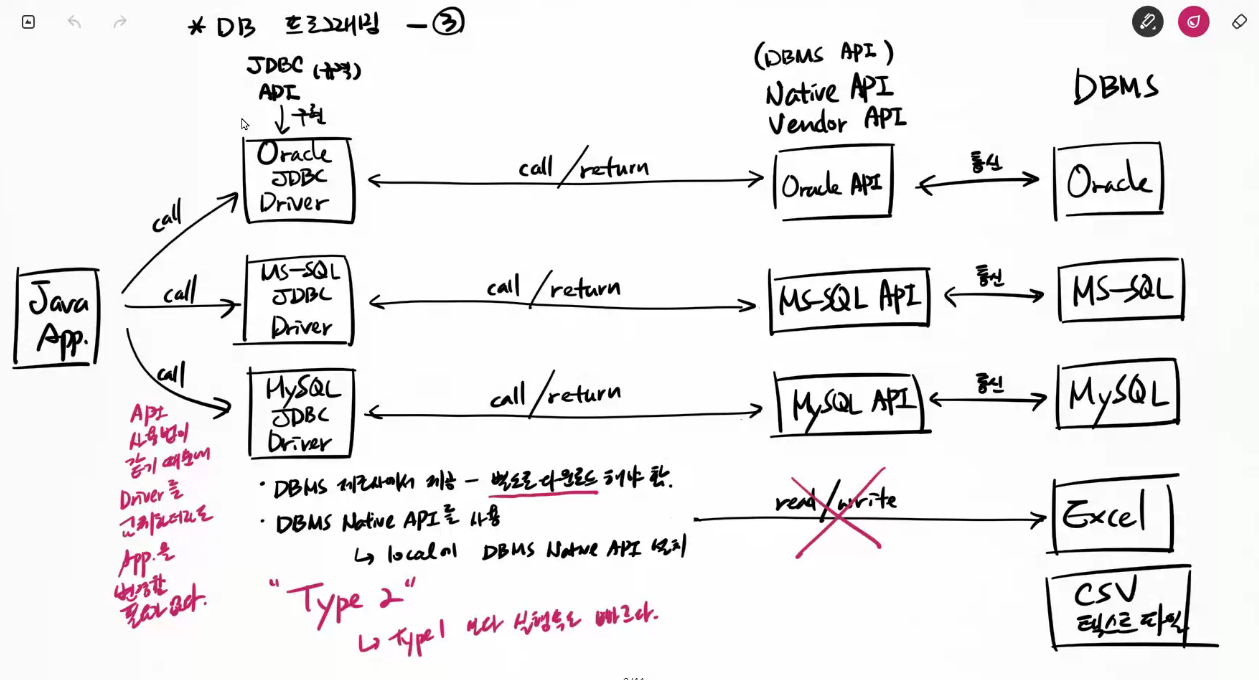 * DB 프로그래밍 - ③
JDBC (규격)
API
↓ 구현
(DBMS API)
Native API
Vendor API
DBMS
Oracle
JDBC
Driver
call / return
Oracle API
통신
Oracle
call
Java
App.
call
MS-SQL
JDBC
Driver
call / return
MS-SQL API
통신
MS-SQL
call
MySQL
JDBC
Driver
call / return
MySQL API
통신
MySQL
API
사용법이
같기 때문에
Driver를
교체하더라도
App.을
변경할
필요가 없다.
· DBMS 제조사에서 제공 - 별도로 다운로드 해야 함.
· DBMS Native API를 사용
↳ local에 DBMS Native API 설치
"Type 2"
↳ Type1 보다 실행속도 빠르다.
read/write
Excel
CSV
텍스트파일